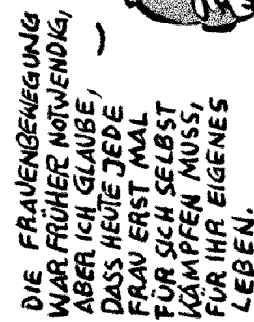 DIE FRAUENBEWEGUNG
WAR FRÜHER NOTWENDIG,
ABER ICH GLAUBE,
DASS HEUTE JEDE
FRAU ERST MAL
FÜR SICH SELBST
KÄMPFEN MUSS,
FÜR IHR EIGENES
LEBEN.